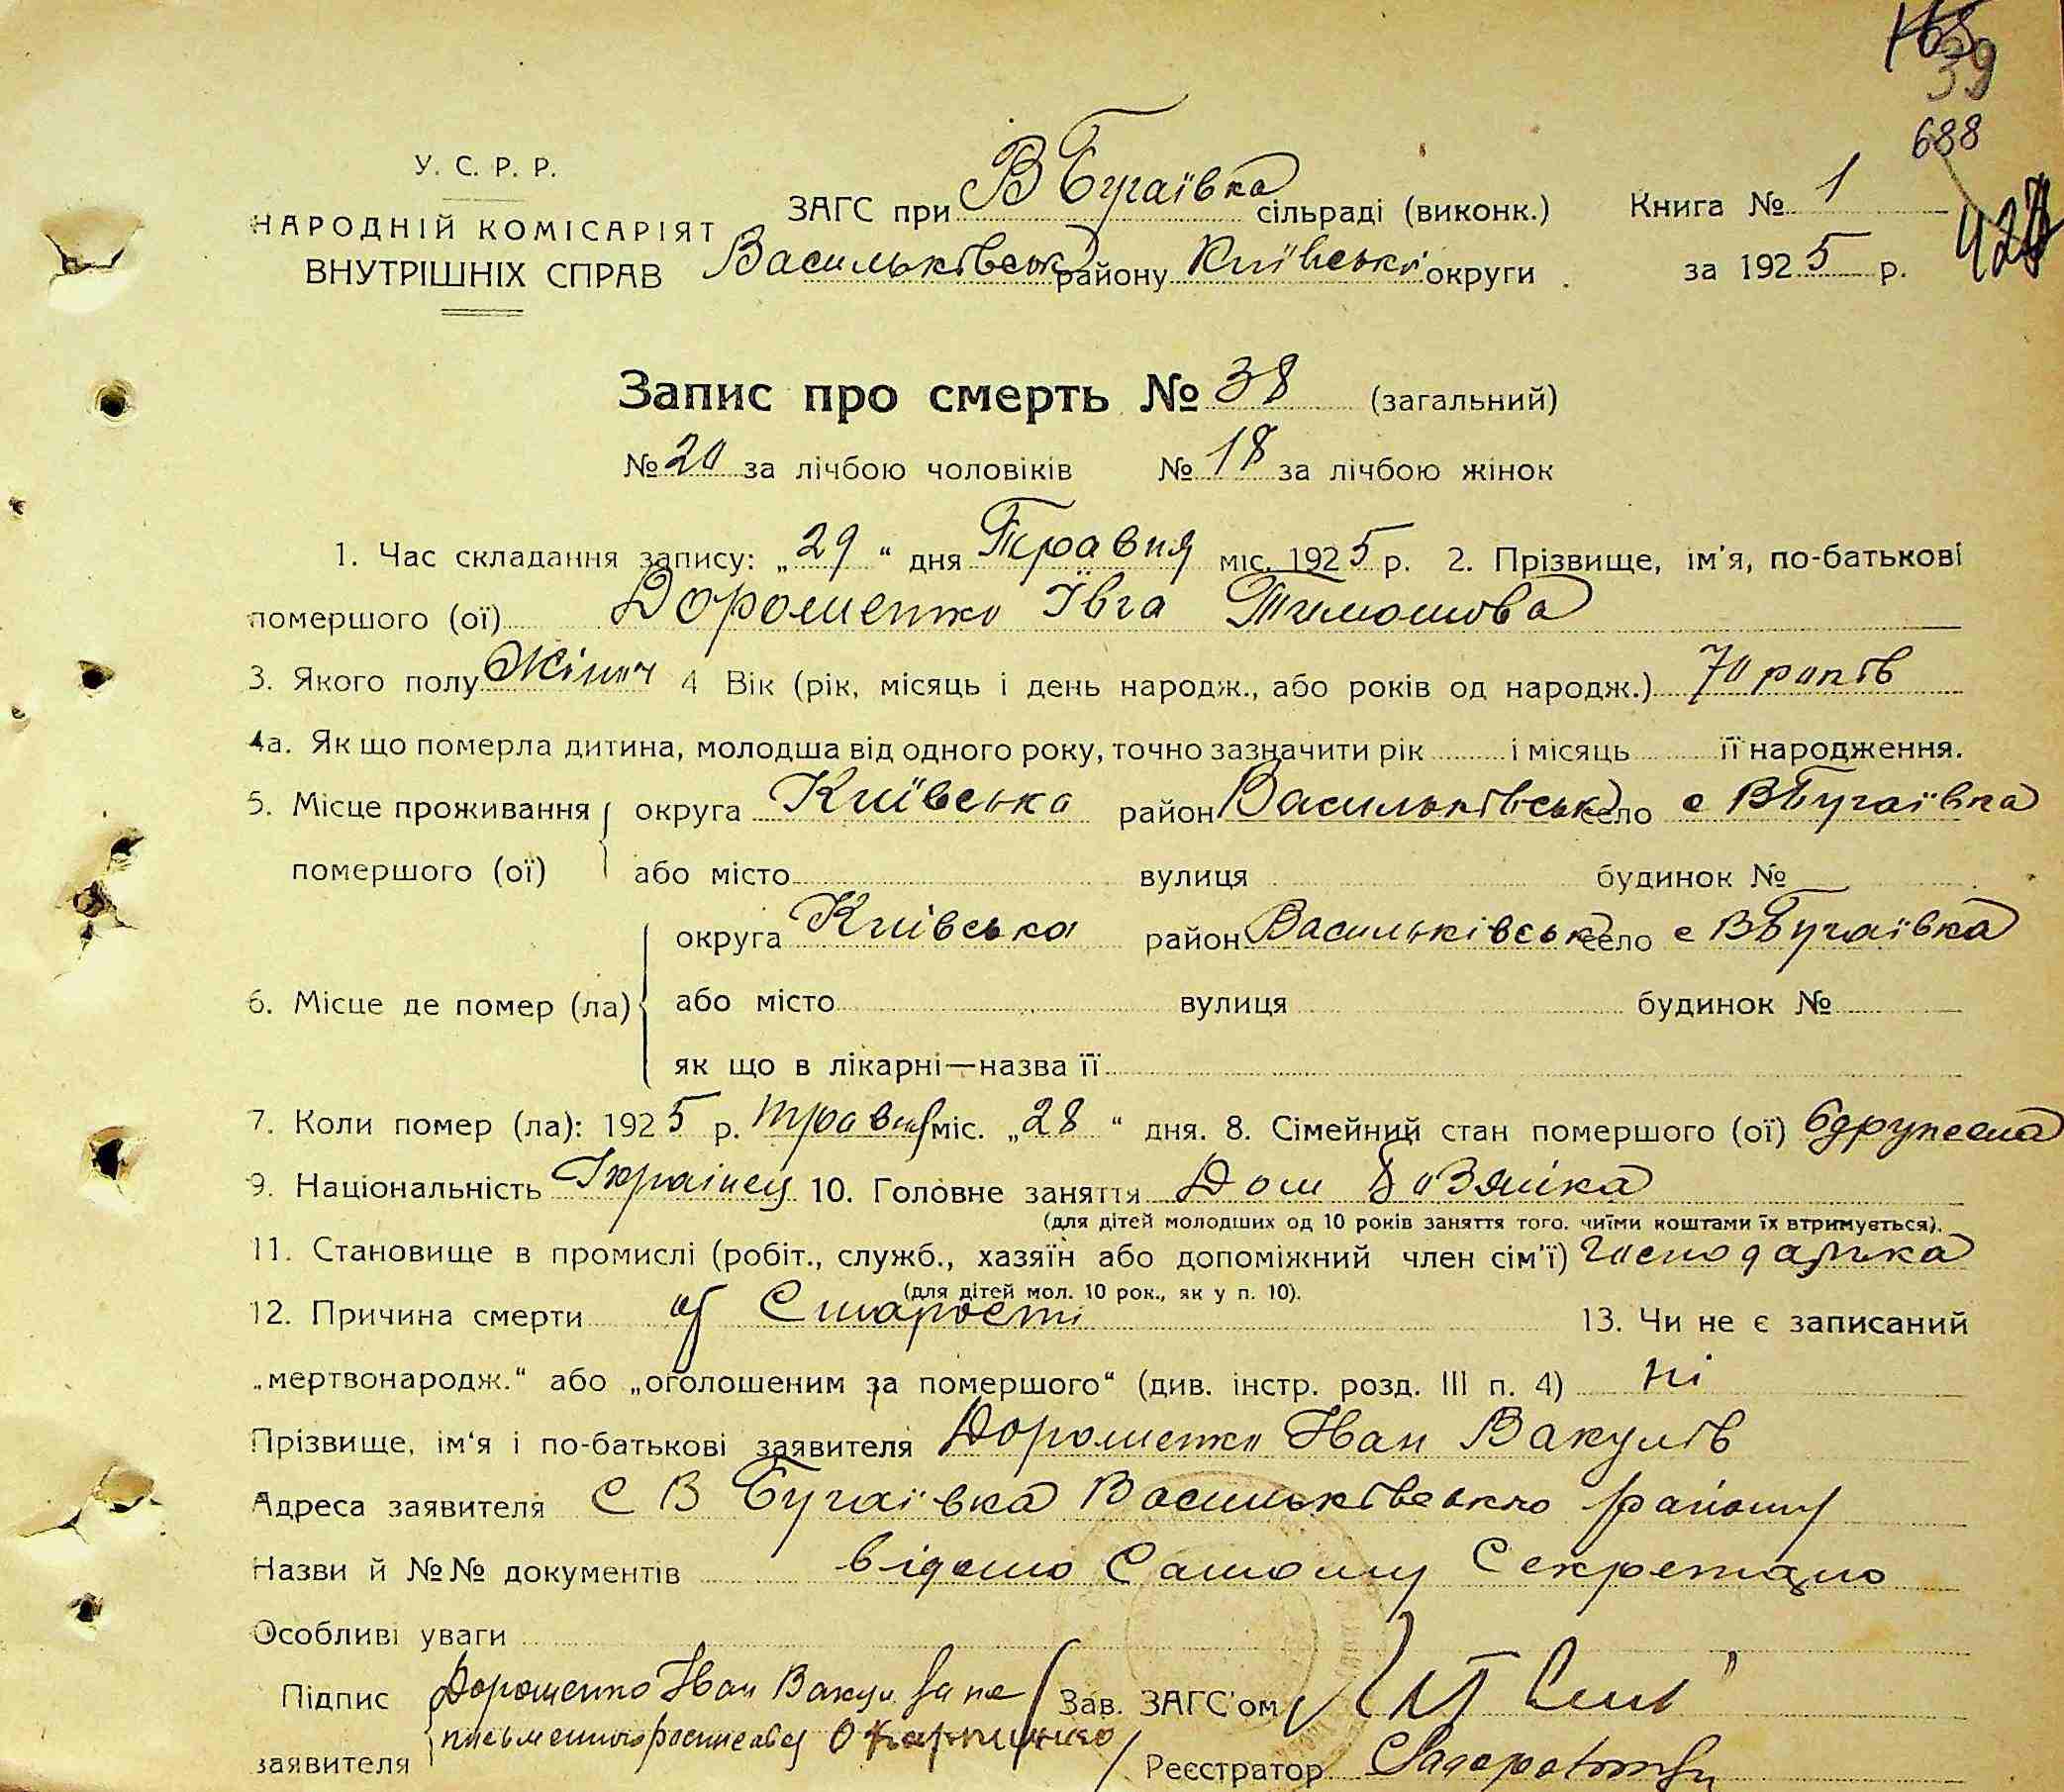 39
688
У. С. Р. Р.
НАРОДНІЙ КОМІСАРІЯТ
ВНУТРІШНІХ СПРАВ
ЗАГС при В Бугаївка сільраді (виконк.)
Васильківськ району Київської округи
Книга № 1
за 1925 р.
Запис про смерть № 38 (загальний)
№ 20 за лічбою чоловіків № 18 за лічбою жінок
1. Час складання запису: „29“ дня Травня міс. 1925 р. 2. Прізвище, ім'я, по-батькові
помершого (ої) Дорошенко Ївга Тимошова
3. Якого полу Жіноч 4 Вік (рік, місяць і день народж., або років од народж.) 70 років
4а. Як що померла дитина, молодша від одного року, точно зазначити рік і місяць її народження.
5. Місце проживання округа Київська район Васильківськ село с ВБугаївка
помершого (ої) або місто вулиця будинок №
округа Київська район Васильківськ село с ВБугаївка
6. Місце де помер (ла) або місто вулиця будинок №
як що в лікарні—назва її
7. Коли помер (ла): 1925 р. травня міс. „28“ дня. 8. Сімейний стан помершого (ої)
9. Національність 10. Головне заняття Дом
(для дітей молодших од 10 років заняття того, чиїми коштами їх втримується).
11. Становище в промислі (робіт., служб., хазяїн або допоміжний член сім'ї) господарка
(для дітей мол. 10 рок., як у п. 10).
12. Причина смерти Старості 13. Чи не є записаний
„мертвонародж.“ або „оголошеним за помершого“ (див. інстр. розд. III п. 4) ні
Прізвище, ім'я і по-батькові заявителя Дорошенко Іван Вакулів
Адреса заявителя С В Бугаївка Васильківсько району
Назви й №№ документів відомо Самому Секретарю
Особливі уваги
Підпис Дорошенко Іван Вакул за не
заявителя
Зав. ЗАГС'ом
Реєстратор